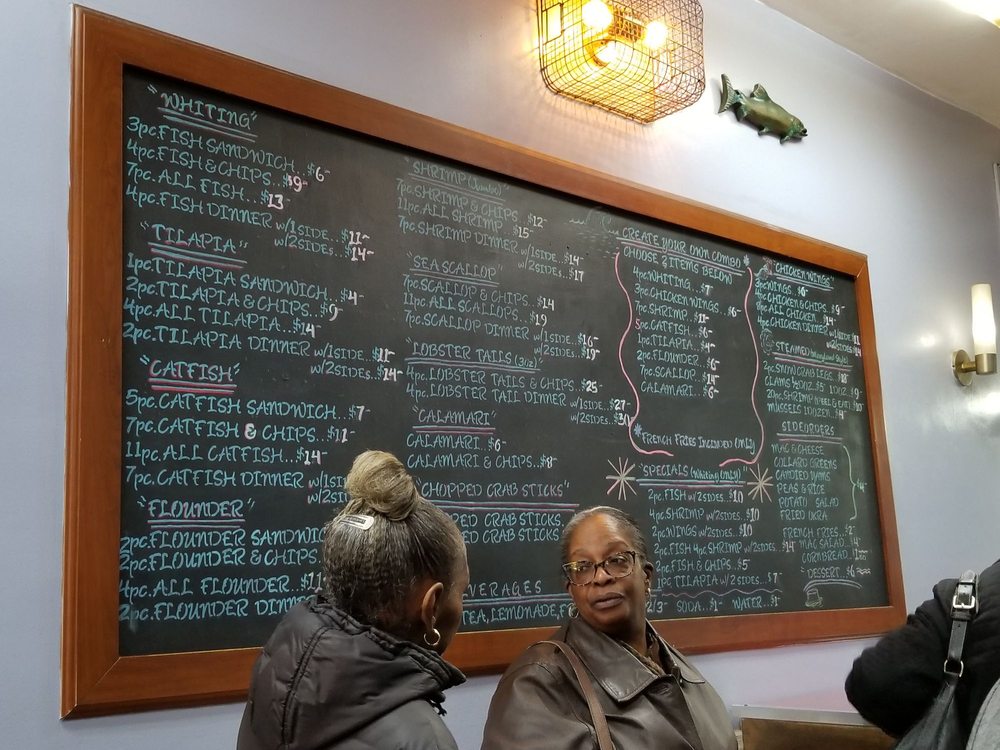 "WHITING"
3pc.FISH SANDWICH...$6-
4pc.FISH & CHIPS...$9-
7pc.ALL FISH...$13
4pc.FISH DINNER w/1SIDE...$11-
w/2SIDEs...$14-
"TILAPIA"
1pc.TILAPIA SANDWICH...$4-
2pc.TILAPIA & CHIPS...$9-
4pc.ALL TILAPIA...$14-
2pc.TILAPIA DINNER w/1SIDE...$11-
w/2SIDEs...$14-
"CATFISH"
5pc.CATFISH SANDWICH...$7-
7pc.CATFISH & CHIPS...$11-
11pc.ALL CATFISH...$14-
7pc.CATFISH DINNER w/1SID
w/2SI
"FLOUNDER"
2pc.FLOUNDER SANDWIC
2pc.FLOUNDER & CHIPS
4pc.ALL FLOUNDER...$11
2pc.FLOUNDER DINNE
"SHRIMP (Jumbo)"
7pc.SHRIMP & CHIPS...$12-
11pc.ALL SHRIMP...$15-
7pc.SHRIMP DINNER w/1SIDE...$14-
w/2SIDEs...$17
"SEA SCALLOP"
7pc.SCALLOP & CHIPS...$14
11pc.ALL SCALLOPS...$19
7pc.SCALLOP DINNER w/1SIDE...$16-
w/2SIDEs...$19-
"LOBSTER TAILS (3oz)"
4pc.LOBSTER TAILS & CHIPS...$25-
4pc.LOBSTER TAIL DINNER w/1SIDE...$27-
w/2SIDEs...$30
"CALAMARI"
CALAMARI...$6-
CALAMARI & CHIPS...$8-
"CHOPPED CRAB STICKS"
PPED CRAB STICKS
ED CRAB STICKS
EVERAGES
TEA, LEMONADE, F
2/3- SODA...$1- WATER...$1-
CREATE YOUR OWN COMBO
CHOOSE 2 ITEMS BELOW
4pc.WHITING...$7-
3pc.CHICKEN WINGS...$6-
7pc.SHRIMP...$11-
5pc.CATFISH...$6-
1pc.TILAPIA...$4-
2pc.FLOUNDER...$6-
7pc.SCALLOP...$14-
CALAMARI...$6-
*FRENCH FRIES INCLUDED ONLY)
"SPECIALS (Whiting ONLY)"
2pc.FISH w/2SIDES...$10
4pc.SHRIMP w/2SIDES...$10
2pc.WINGS w/2SIDES...$10
2pc.FISH 4pc.SHRIMP w/2SIDES...$14-
2pc.FISH & CHIPS...$5
1PC TILAPIA w/2 SIDES...$7-
"CHICKEN WINGS"
3pc.WINGS...$6-
CHICKEN & CHIPS...$9-
ALL CHICKEN...$14-
CHICKEN DINNER w/1SIDE...$11
w/2SIDEs...$14
"STEAMED (Maryland Style)
2pc.SNOW CRAB LEGS...$18
CLAMS ½DOZ...$5 1DOZ...$9-
20pc.SHRIMP (PEEL & EAT)...$10
MUSSELS 1DOZEN...$8-
SIDEORDERS
MAC & CHEESE
COLLARD GREENS
CANDIED YAMS
PEAS & RICE
POTATO SALAD
FRIED OKRA
$4-
FRENCH FRIES...$2-
MAC SALAD...$4-
CORNBREAD...$1
"DESSERT...$6